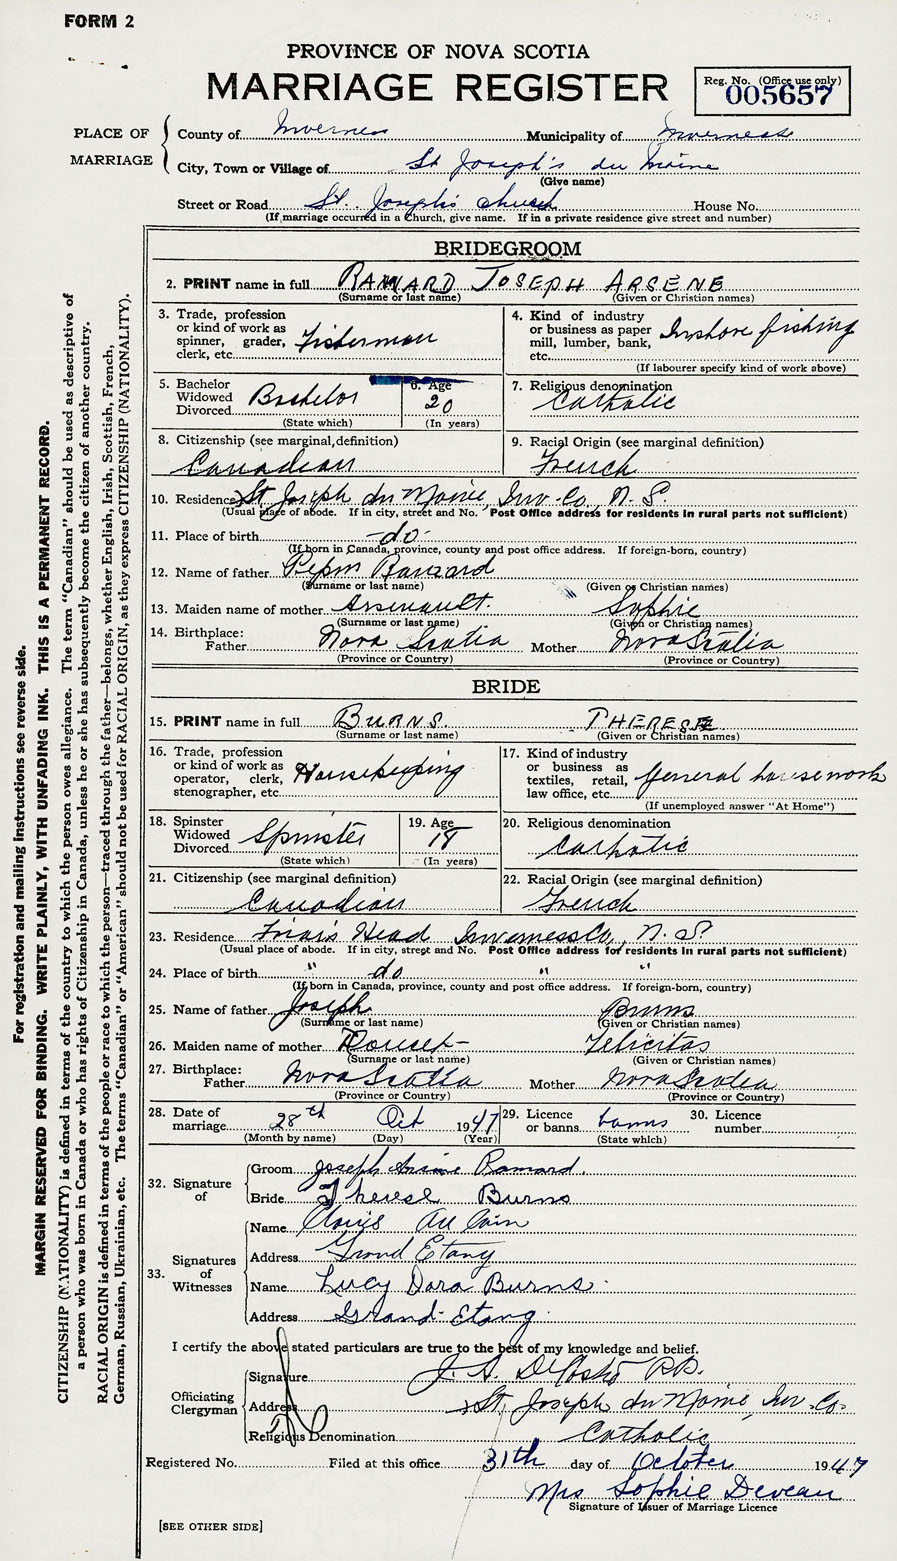 FORM 2
PROVINCE OF NOVA SCOTIA
MARRIAGE REGISTER
Reg. No. (Office use only)
005657
PLACE OF MARRIAGE
County of Inverness Municipality of Inverness
City, Town or Village of St Joseph's du Moine
(Give name)
Street or Road St. Joseph's church House No.
(If marriage occurred in a Church, give name. If in a private residence give street and number)
BRIDEGROOM
2. PRINT name in full RANNARD JOSEPH ARSENE
(Surname or last name) (Given or Christian names)
3. Trade, profession or kind of work as spinner, grader, clerk, etc. Fisherman
4. Kind of industry or business as paper mill, lumber, bank, etc. Inshore fishing
(If labourer specify kind of work above)
5. Bachelor Widowed Divorced Bachelor
(State which)
6. Age 20
(In years)
7. Religious denomination Catholic
8. Citizenship (see marginal definition) Canadian
9. Racial Origin (see marginal definition) French
10. Residence St Joseph du Moine, Inv. Co., N. S.
(Usual place of abode. If in city, street and No. Post Office address for residents in rural parts not sufficient)
11. Place of birth do
(If born in Canada, province, county and post office address. If foreign-born, country)
12. Name of father
(Surname or last name) (Given or Christian names)
13. Maiden name of mother Arsenault. Sophie
(Surname or last name) (Given or Christian names)
14. Birthplace: Father Nova Scotia Mother Nova Scotia
(Province or Country) (Province or Country)
BRIDE
15. PRINT name in full BURNS. THERESE
(Surname or last name) (Given or Christian names)
16. Trade, profession or kind of work as operator, clerk, stenographer, etc. Housekeeping
17. Kind of industry or business as textiles, retail, law office, etc. General housework
(If unemployed answer "At Home")
18. Spinster Widowed Divorced Spinster
(State which)
19. Age 18
(In years)
20. Religious denomination Catholic
21. Citizenship (see marginal definition) Canadian
22. Racial Origin (see marginal definition) French
23. Residence Friar's Head Inverness Co., N. S.
(Usual place of abode. If in city, street and No. Post Office address for residents in rural parts not sufficient)
24. Place of birth " do " "
(If born in Canada, province, county and post office address. If foreign-born, country)
25. Name of father Joseph Burns
(Surname or last name) (Given or Christian names)
26. Maiden name of mother Felicitas
(Surname or last name) (Given or Christian names)
27. Birthplace: Father Nova Scotia Mother Nova Scotia
(Province or Country) (Province or Country)
28. Date of marriage 28th Oct 1947
(Month by name) (Day) (Year)
29. Licence or banns banns
(State which)
30. Licence number
32. Signature of
Groom Joseph Arsene Rannard.
Bride Therese Burns
33. Signatures of Witnesses
Name Au Coin
Address Grand Etang
Name Lucy Dora Burns.
Address Grand-Etang.
I certify the above stated particulars are true to the best of my knowledge and belief.
Officiating Clergyman
Signature J. A. DeCoste P.P.
Address St Joseph du Moine, Inv. Co.
Religious Denomination Catholic
Registered No. Filed at this office 31th day of October 1947
Mrs Sophie Deveau
Signature of Issuer of Marriage Licence
[SEE OTHER SIDE]
For registration and mailing instructions see reverse side.
MARGIN RESERVED FOR BINDING. WRITE PLAINLY, WITH UNFADING INK. THIS IS A PERMANENT RECORD.
CITIZENSHIP (NATIONALITY) is defined in terms of the country to which the person owes allegiance. The term "Canadian" should be used as descriptive of
a person who was born in Canada or who has rights of Citizenship in Canada, unless he or she has subsequently become the citizen of another country.
RACIAL ORIGIN is defined in terms of the people or race to which the person—traced through the father—belongs, whether English, Irish, Scottish, French,
German, Russian, Ukrainian, etc. The terms "Canadian" or "American" should not be used for RACIAL ORIGIN, as they express CITIZENSHIP (NATIONALITY).